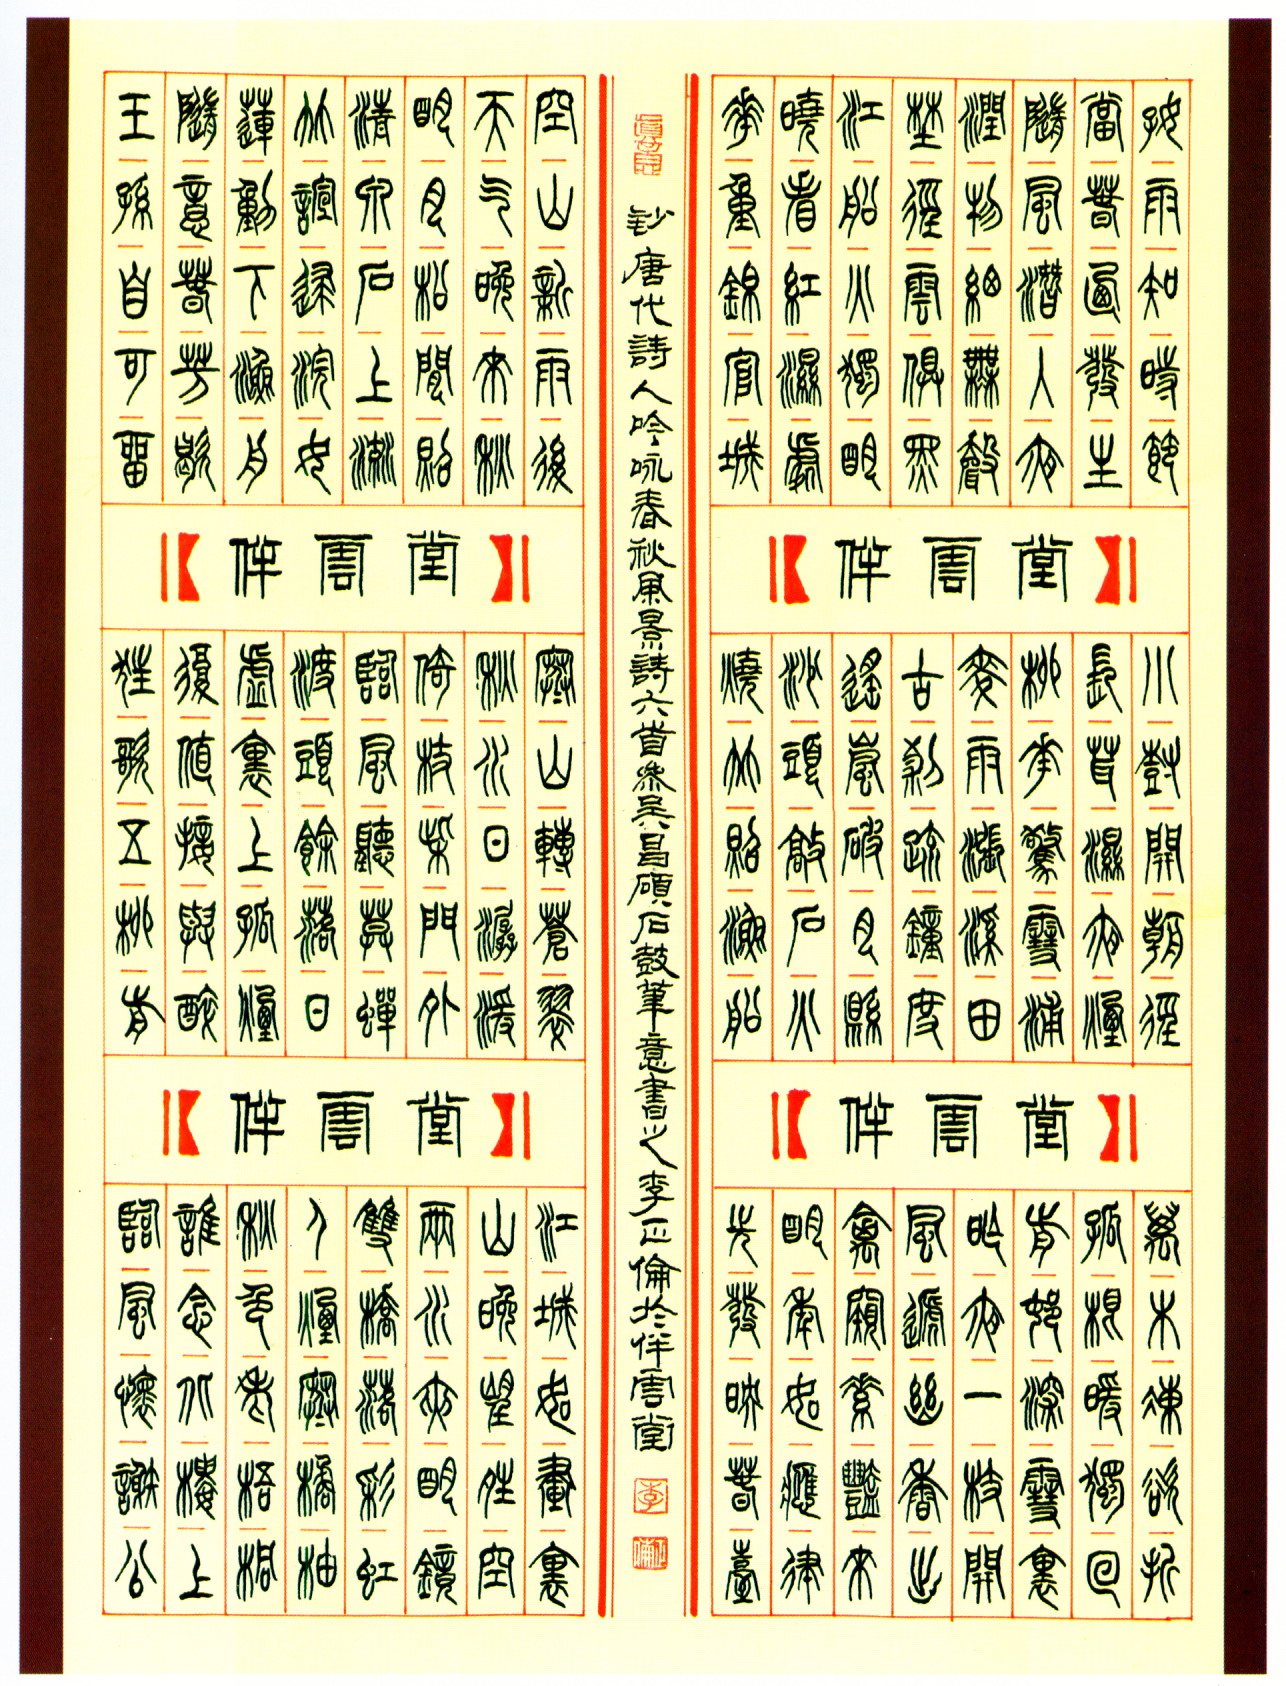 好雨知時節
當春乃發生
隨風潛入夜
潤物細無聲
野徑雲俱黑
江船火獨明
曉看紅濕處
花重錦官城
伴雲堂
小樹開朝徑
長茸濕夜煙
柳花驚雪浦
麥雨漲溪田
古剎疏鐘度
遙嵐破月懸
沙頭敲石火
燒竹照漁船
伴雲堂
萬木凍欲折
孤根暖獨回
前村深雪裏
昨夜一枝開
風遞幽香出
禽窺素艷來
明年如應律
先發映春臺
鈔唐代詩人吟咏春秋風景詩六首參吳昌碩石鼓筆意書之李正倫於伴雲堂
空山新雨後
天氣晚來秋
明月松間照
清泉石上流
竹喧歸浣女
蓮動下漁舟
隨意春芳歇
王孫自可留
伴雲堂
寒山轉蒼翠
秋水日潺湲
倚杖柴門外
臨風聽暮蟬
渡頭餘落日
墟裏上孤煙
復值接輿醉
狂歌五柳前
伴雲堂
江城如畫裏
山晚望晴空
兩水夾明鏡
雙橋落彩虹
人煙寒橘柚
秋色老梧桐
誰念北樓上
臨風懷謝公